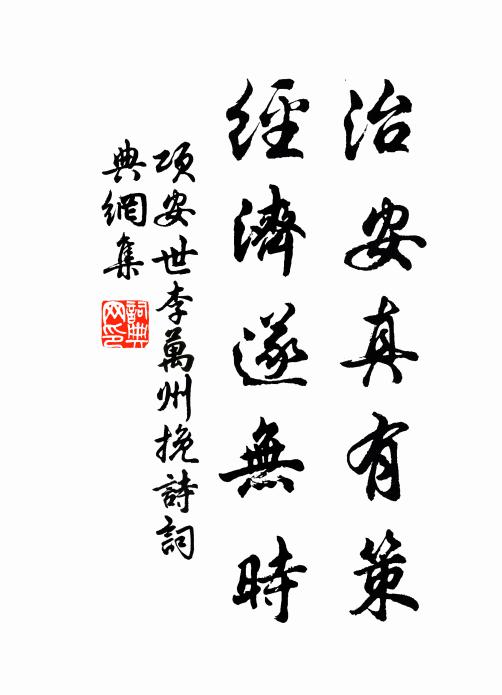 治安真有策
經濟遂無時
項安世李萬州挽詩詞
典網集
詞典
网印